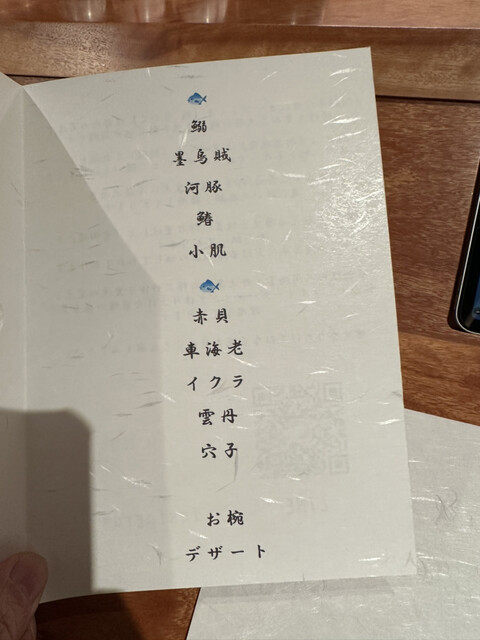 鰯
墨烏賊
河豚
鰆
小肌
赤貝
車海老
イクラ
雲丹
穴子
お椀
デザート